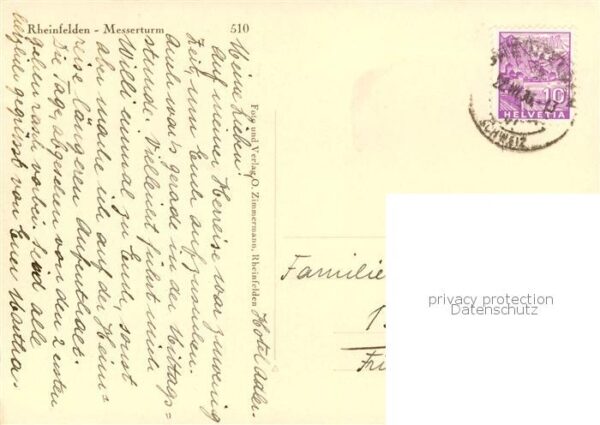 Rheinfelden - Messerturm
510
Foto und Verlag O. Zimmermann, Rheinfelden
Hotel Adler.
Meine Lieben!
Auf meiner Herreise war zu wenig
Zeit, um Euch aufzusuchen.
Auch war's gerade in der Mittags=
stunde. Vielleicht führt mich
Willi einmal zu Euch, sonst
aber mache ich auf der Heim=
reise längeren Aufenthalt.
Die Tage, abgesehen von den 2 ersten
gehen rasch vorbei. Seid alle
herzlich gegrüsst von Eurer Martha.
10
HELVETIA
SCHWEIZ
Familie
privacy protection
Datenschutz